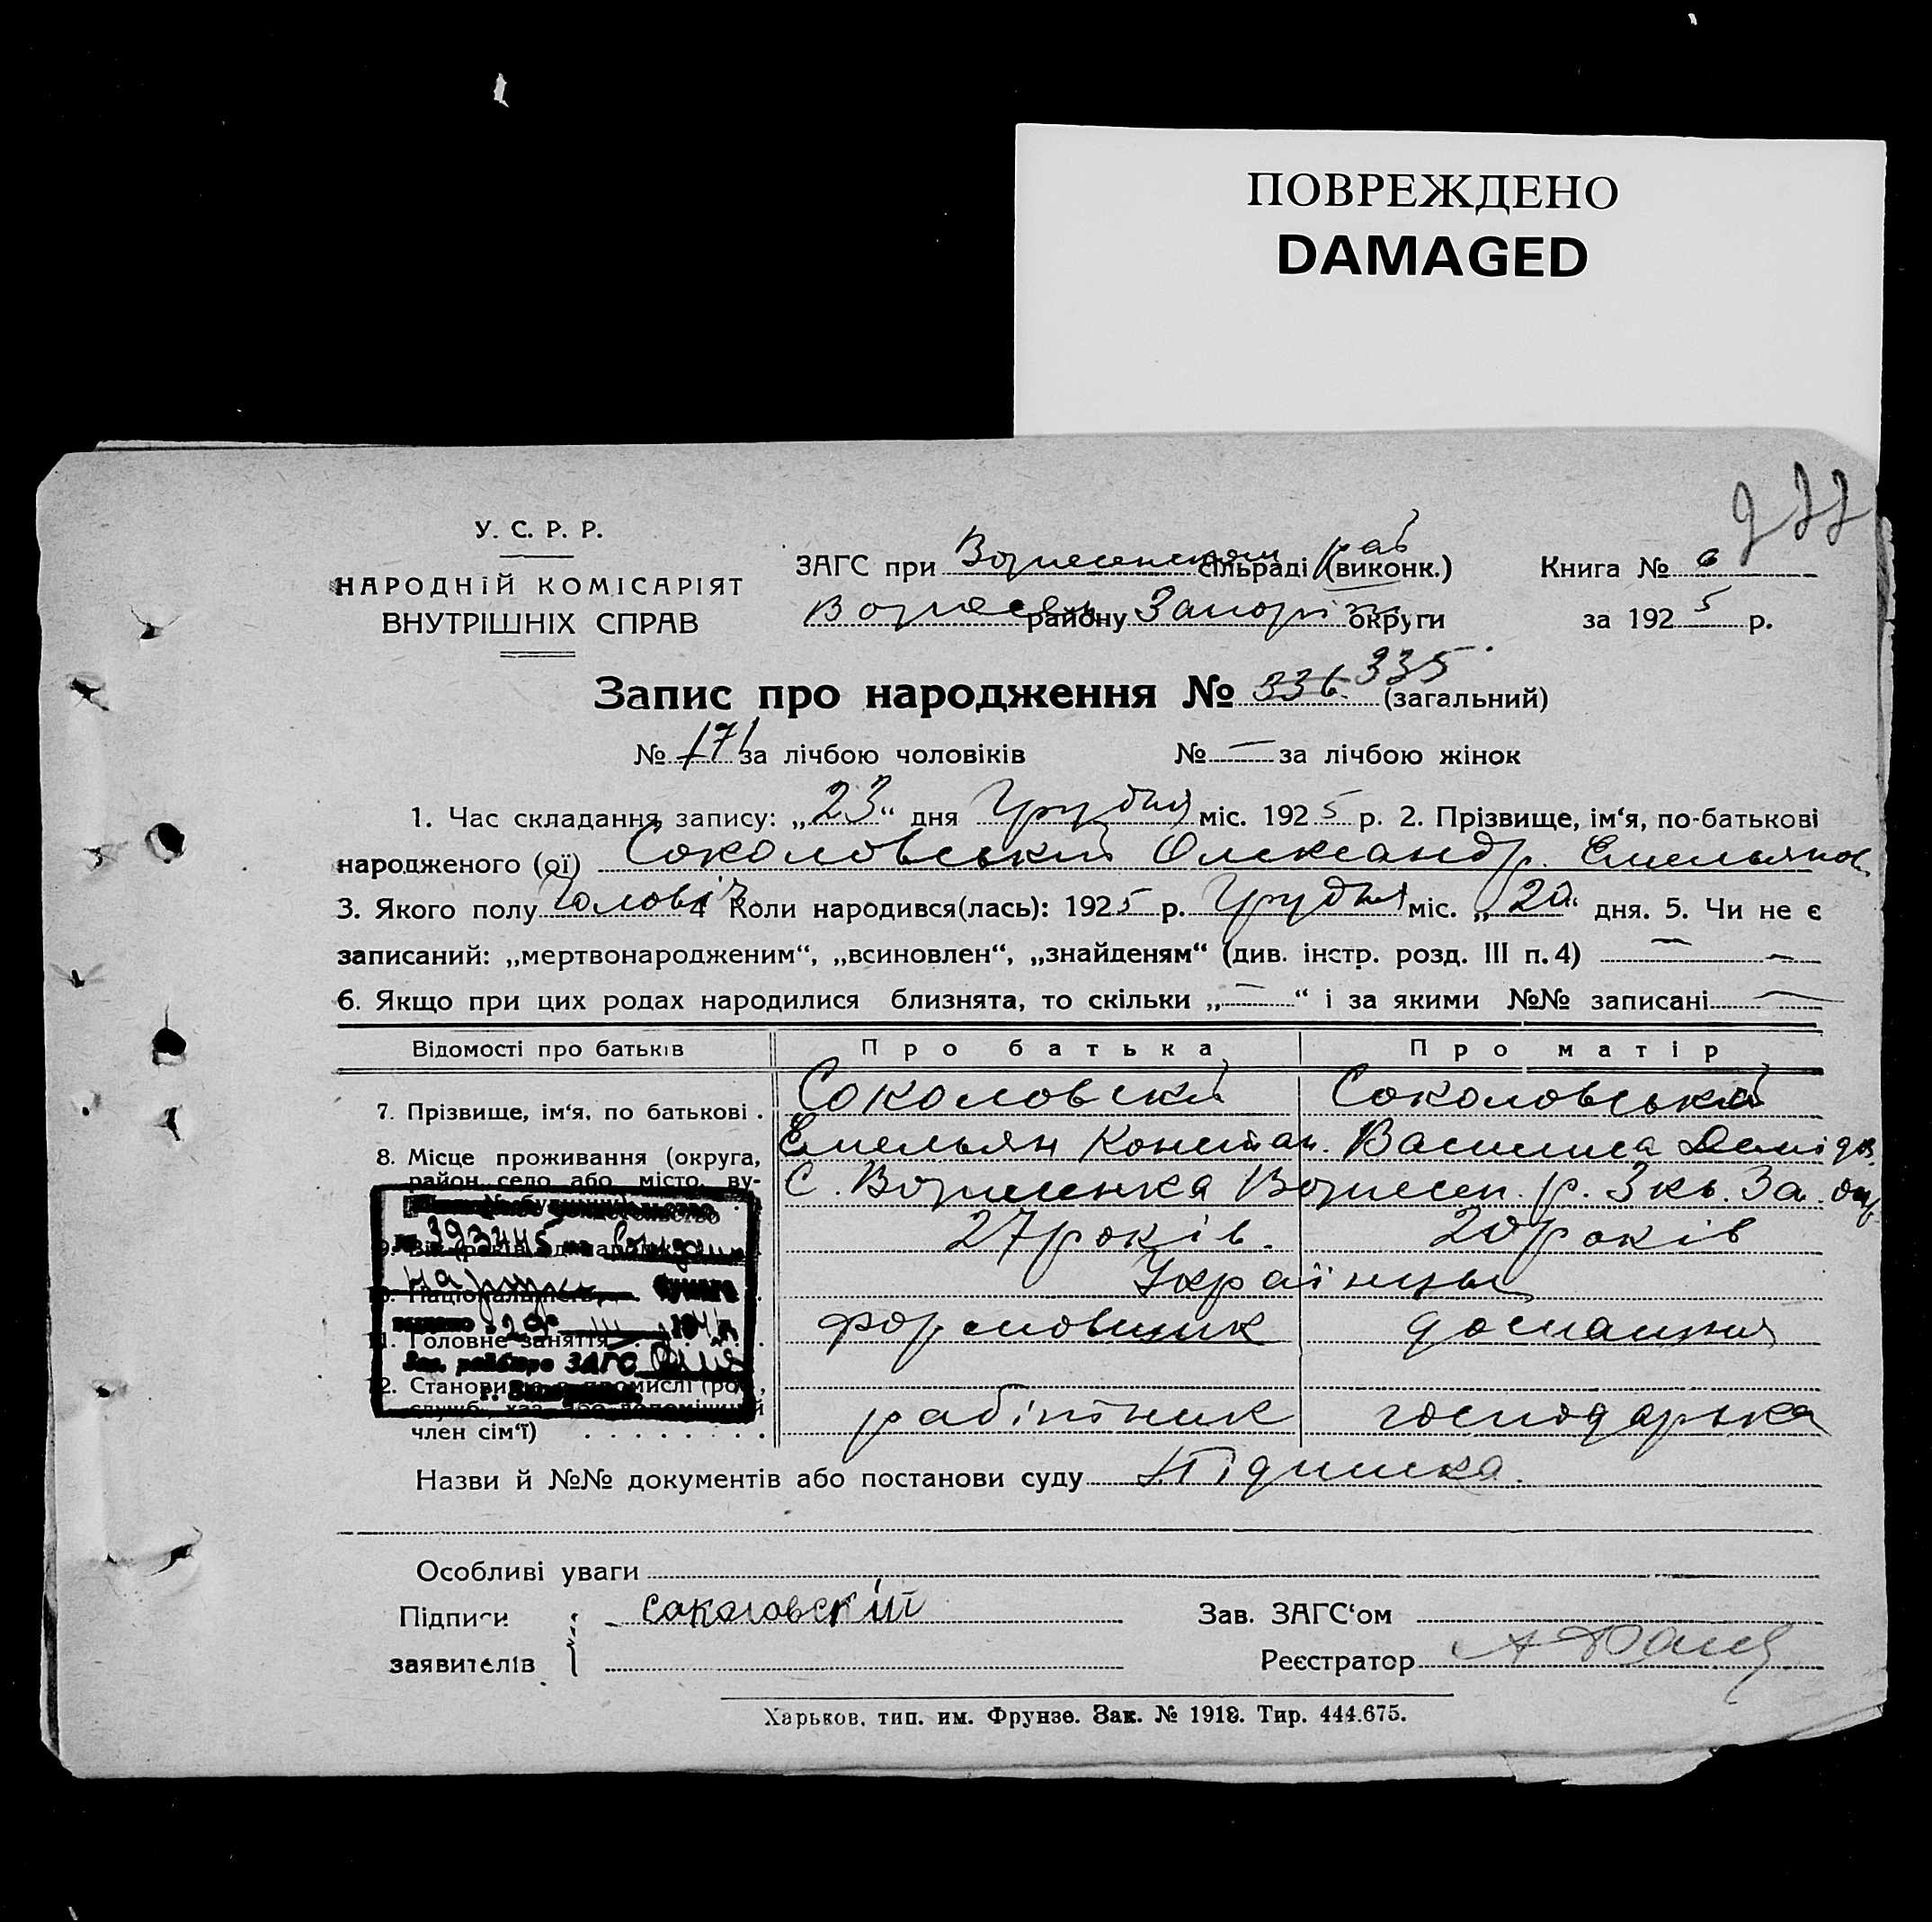 ПОВРЕЖДЕНО
DAMAGED
277
У. С. Р. Р.
НАРОДНІЙ КОМІСАРІЯТ
ВНУТРІШНІХ СПРАВ
ЗАГС при Вознесенском сільраді (виконк.) раб
Вознесень району Запоріж округи
Книга № 6
за 1925 р.
Запис про народження № 336 335 (загальний)
№ 171 за лічбою чоловіків № — за лічбою жінок
1. Час складання запису: „23“ дня Грудня міс. 1925 р. 2. Прізвище, ім‘я, по-батькові
народженого (ої) Соколовський Олександр. Емельянов
3. Якого полу Чоловіч 4 Коли народився(лась): 1925 р. Грудня міс. „20“ дня. 5. Чи не є
записаний: „мертвонародженим“, „всиновлен“, „знайденям“ (див. інстр. розд. III п. 4) —
6. Якщо при цих родах народилися близнята, то скільки „—“ і за якими №№ записані —
Відомості про батьків Про батька Про матір
7. Прізвище, ім‘я, по батькові . Соколовский Соколовська
Емельян Констан. Василиса Демідов.
8. Місце проживання (округа,
район село або місто, ву-
С. Вознесенка Вознесен. р. 3 кв. За. окр
27 років. 20 років
Українцы
11. Головне заняття формовщик домашня
12. Становище в промислі (роб.,
служб., хаз. або допоміжний
член сім‘ї) робітник господарька
Назви й №№ документів або постанови суду Підписка.
Особливі уваги
Підписи заявителів Сокаловскій
Зав. ЗАГС‘ом
Реєстратор
Харьков, тип. им. Фрунзе. Зак. № 1918. Тир. 444.675.